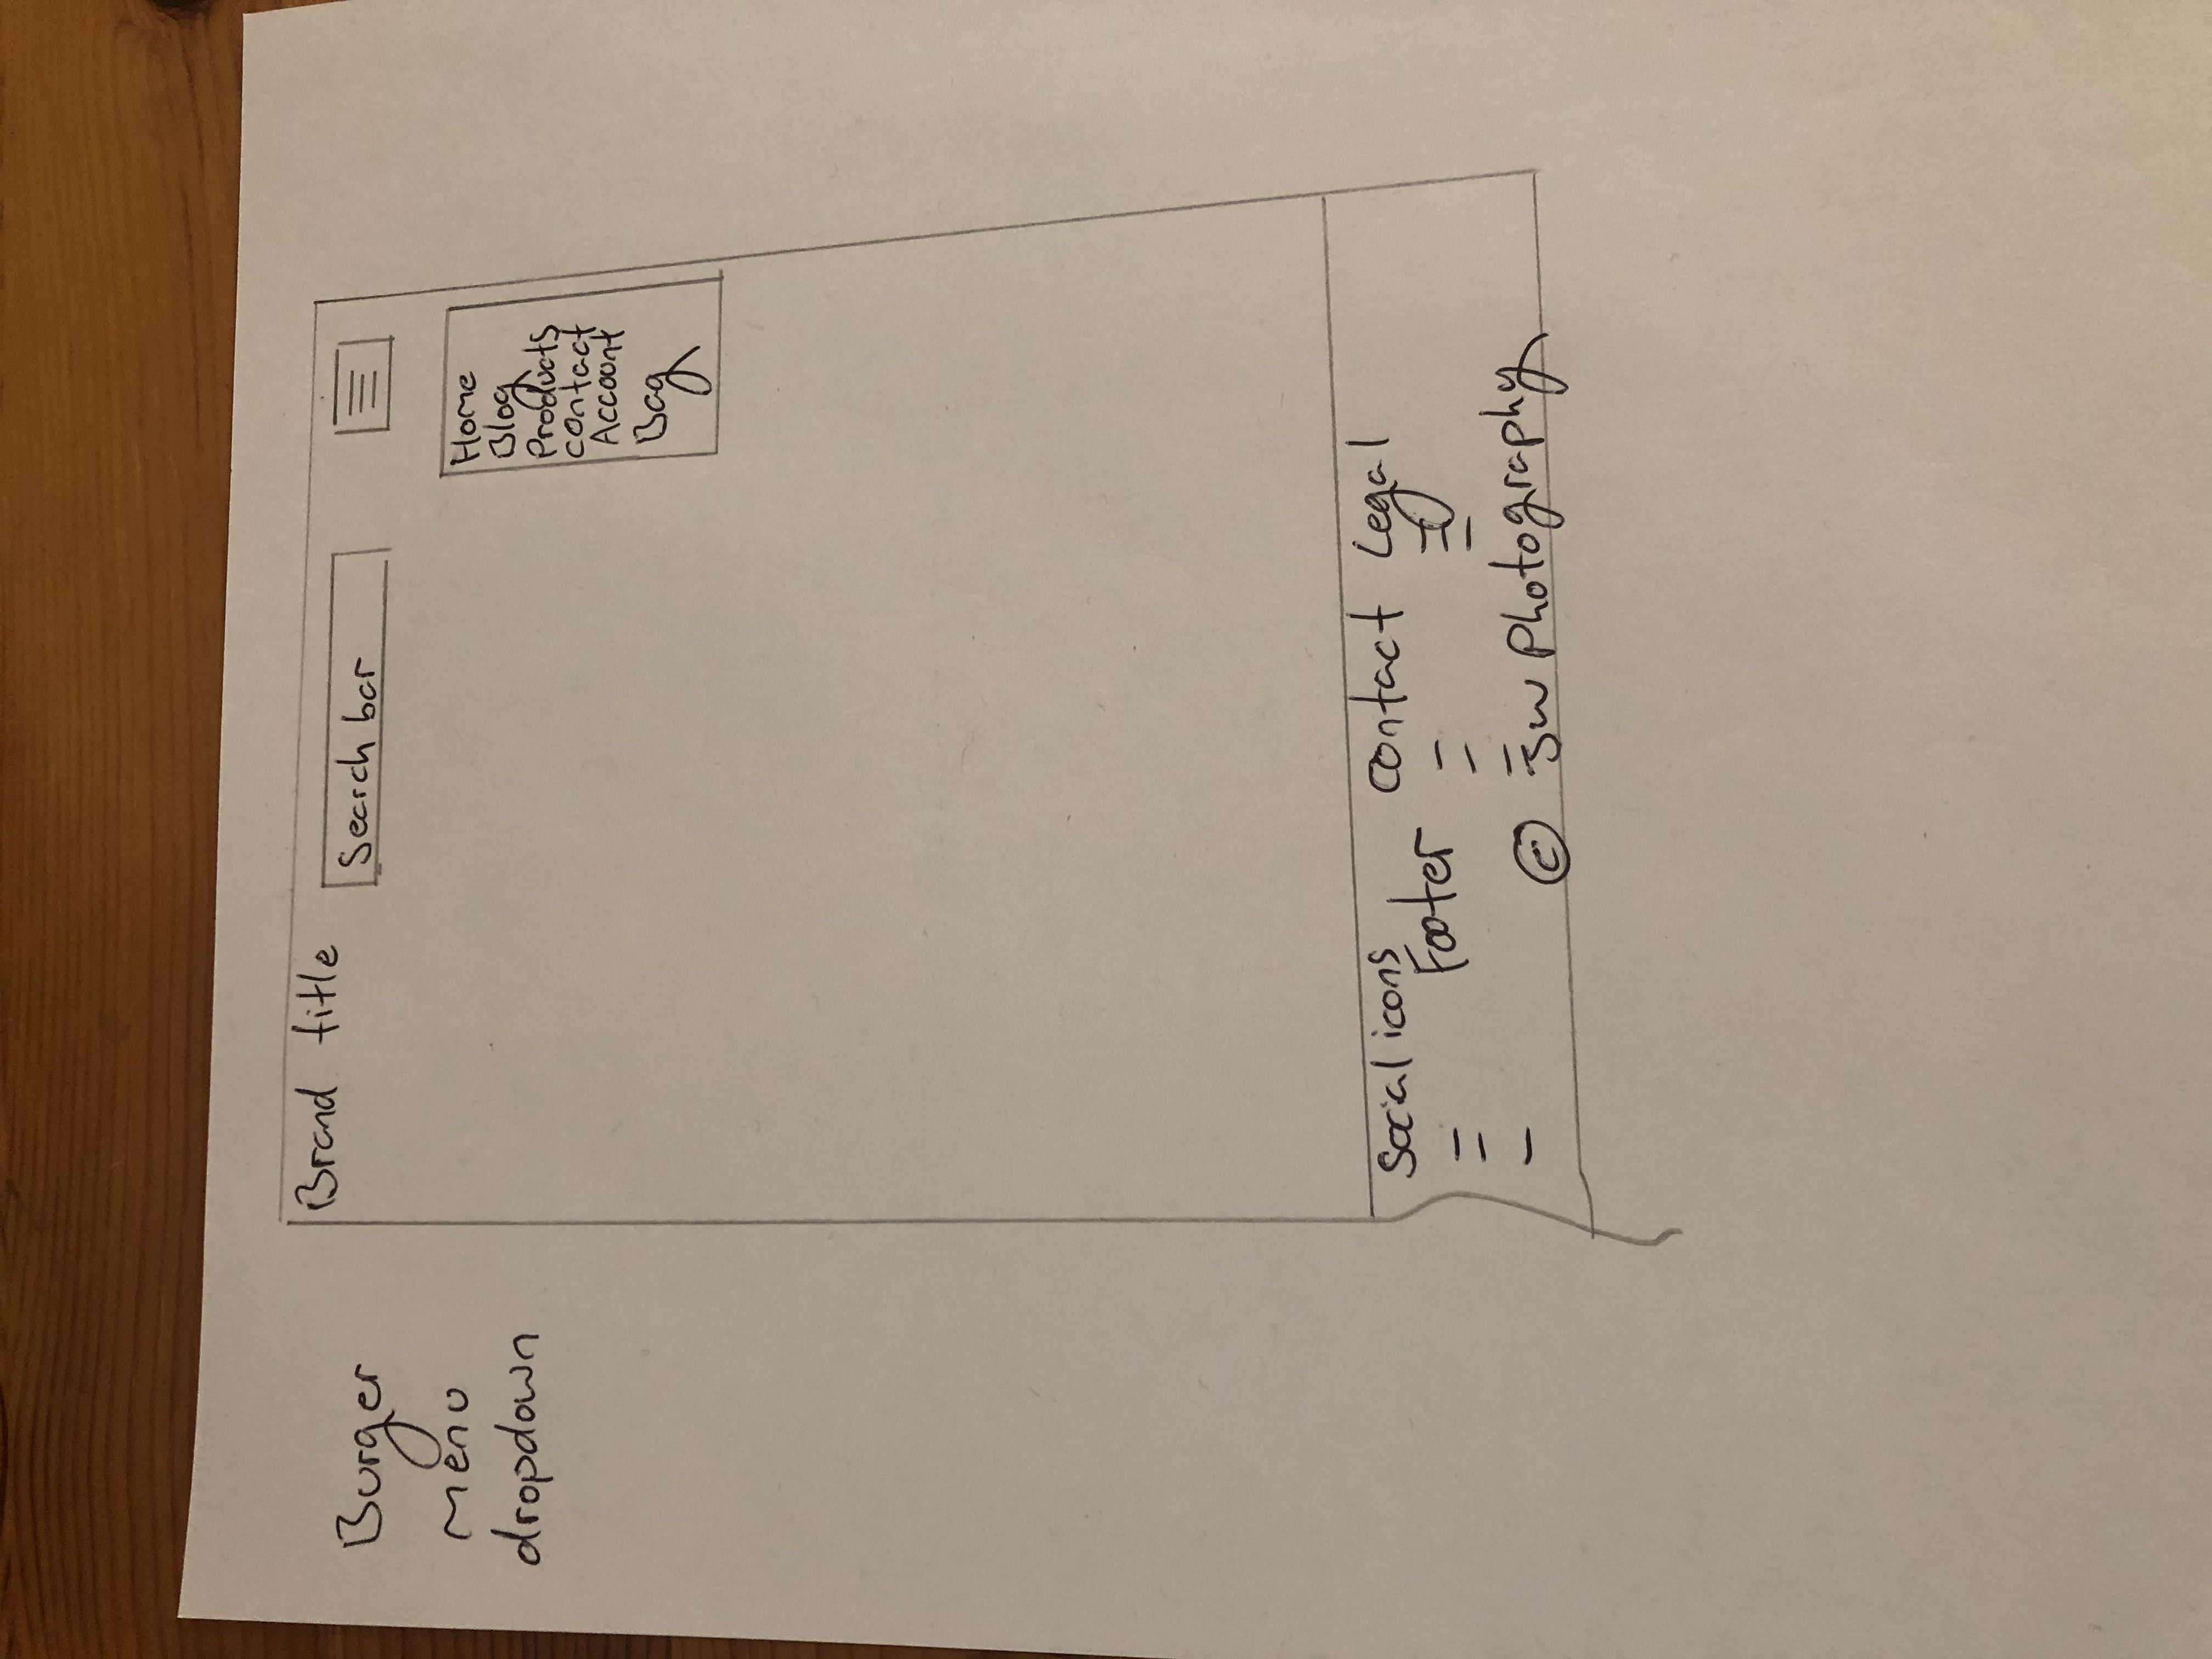 Burger
menu
dropdown
Brand title
Search bar
Home
Blog
Products
contact
Account
Bag
Social icons
Footer
contact
Legal
© JW Photography